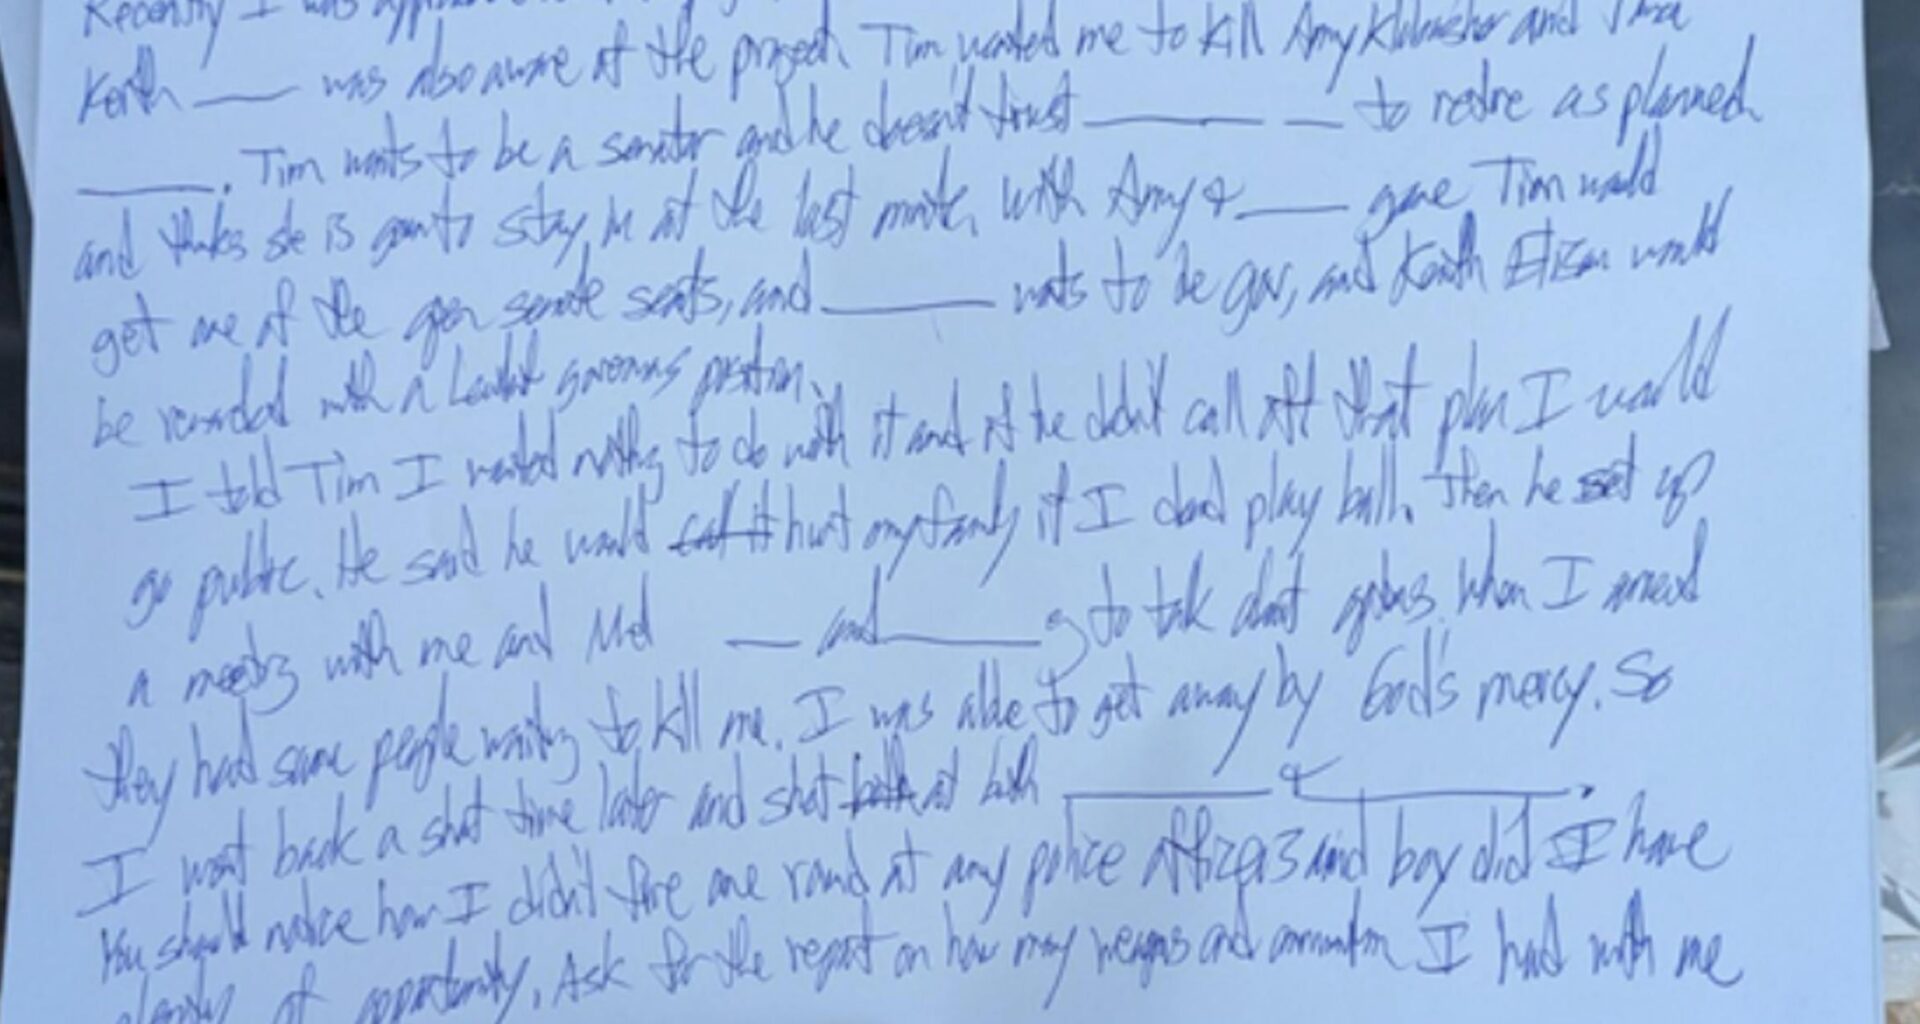 Recently I was
Keith ___ was also aware of the project. Tim wanted me to kill Amy Klobuchar and
___. Tim wants to be a senator and he doesn't trust ___ __ to retire as planned
and thinks she is goin to stay in at the last minute. with Amy & ___ gone Tim would
get one of the open senate seats, and ___ wants to be gov, and Keith would
be rewarded with a governors position.
I told Tim I wanted nothing to do with it and if he didn't call off that plan I would
go public. He said he would call it hurt my family if I dond play ball. Then he set up
a meeting with me and ___ and ___ to talk about When I arrived
they had some people waiting to kill me. I was able to get away by God's mercy. So
I went back a shot time later and shot both at both ___ & ___.
You should notice how I didn't fire one round at any police officers and boy did I have
plenty of opportunity. Ask for the report on how many weapons and I had with me